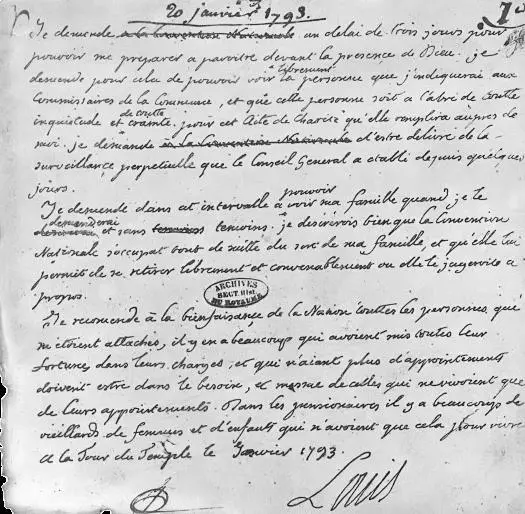 20 janvier 1793.
Je demande a la Convention Nationale un delai de trois jours pour
pouvoir me préparer a paroitre devant la presence de Dieu. je
demande pour cela de pouvoir voir librement la personne que j'indiquerai aux
Commissaires de la Commune, et que cette personne soit a l'abri de toutte
inquietude et de toutte crainte pour cet Acte de Charité qu'elle remplira aupres de
moi. je demande a la Convention Nationale d'estre délivré de la
surveillance perpetuelle que le Conseil General a etabli depuis quelques
jours.
Je demande dans cet intervalle a pouvoir voir ma famille quand je le
demanderai et sans temoins. je désirerois bien que la Convention
Nationale s'occupat tout de suitte du sort de ma famille, et qu'elle lui
permit de se retirer librement et convenablement ou elle le jugeroit a
propos.
ARCHIVES
SECT. HIST
DU ROYAUME
Je recomende à la bienfaisance de la Nation touttes les personnes qui
m'etoient attachés, il y en a beaucoup qui avoient mis toutes leur
fortune dans leurs charges, et qui n'aiant plus d'appointements
doivent estre dans le besoin, et mesme de celles qui ne vivoient que
de leurs appointements. Dans les pensionaires il y a beaucoup de
vieillards de femmes et d'enfants qui n'avoient que cela pour vivre
a la Tour du Temple le Janvier 1793.
Louis